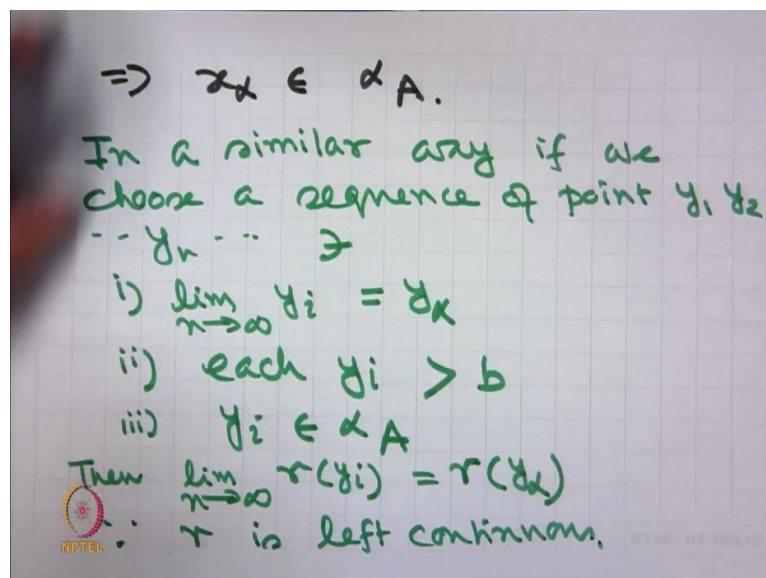 ⇒ x_α ∈ α_A.
In a similar way if we
choose a sequence of point y₁ y₂
-- yₙ - .. ∋
i) lim_{n→∞} y_i = y_α
ii) each y_i > b
iii) y_i ∈ α_A
Then lim_{n→∞} r(y_i) = r(y_α)
∵ r is left continuous.
NPTEL
ETSC, IIT DELHI